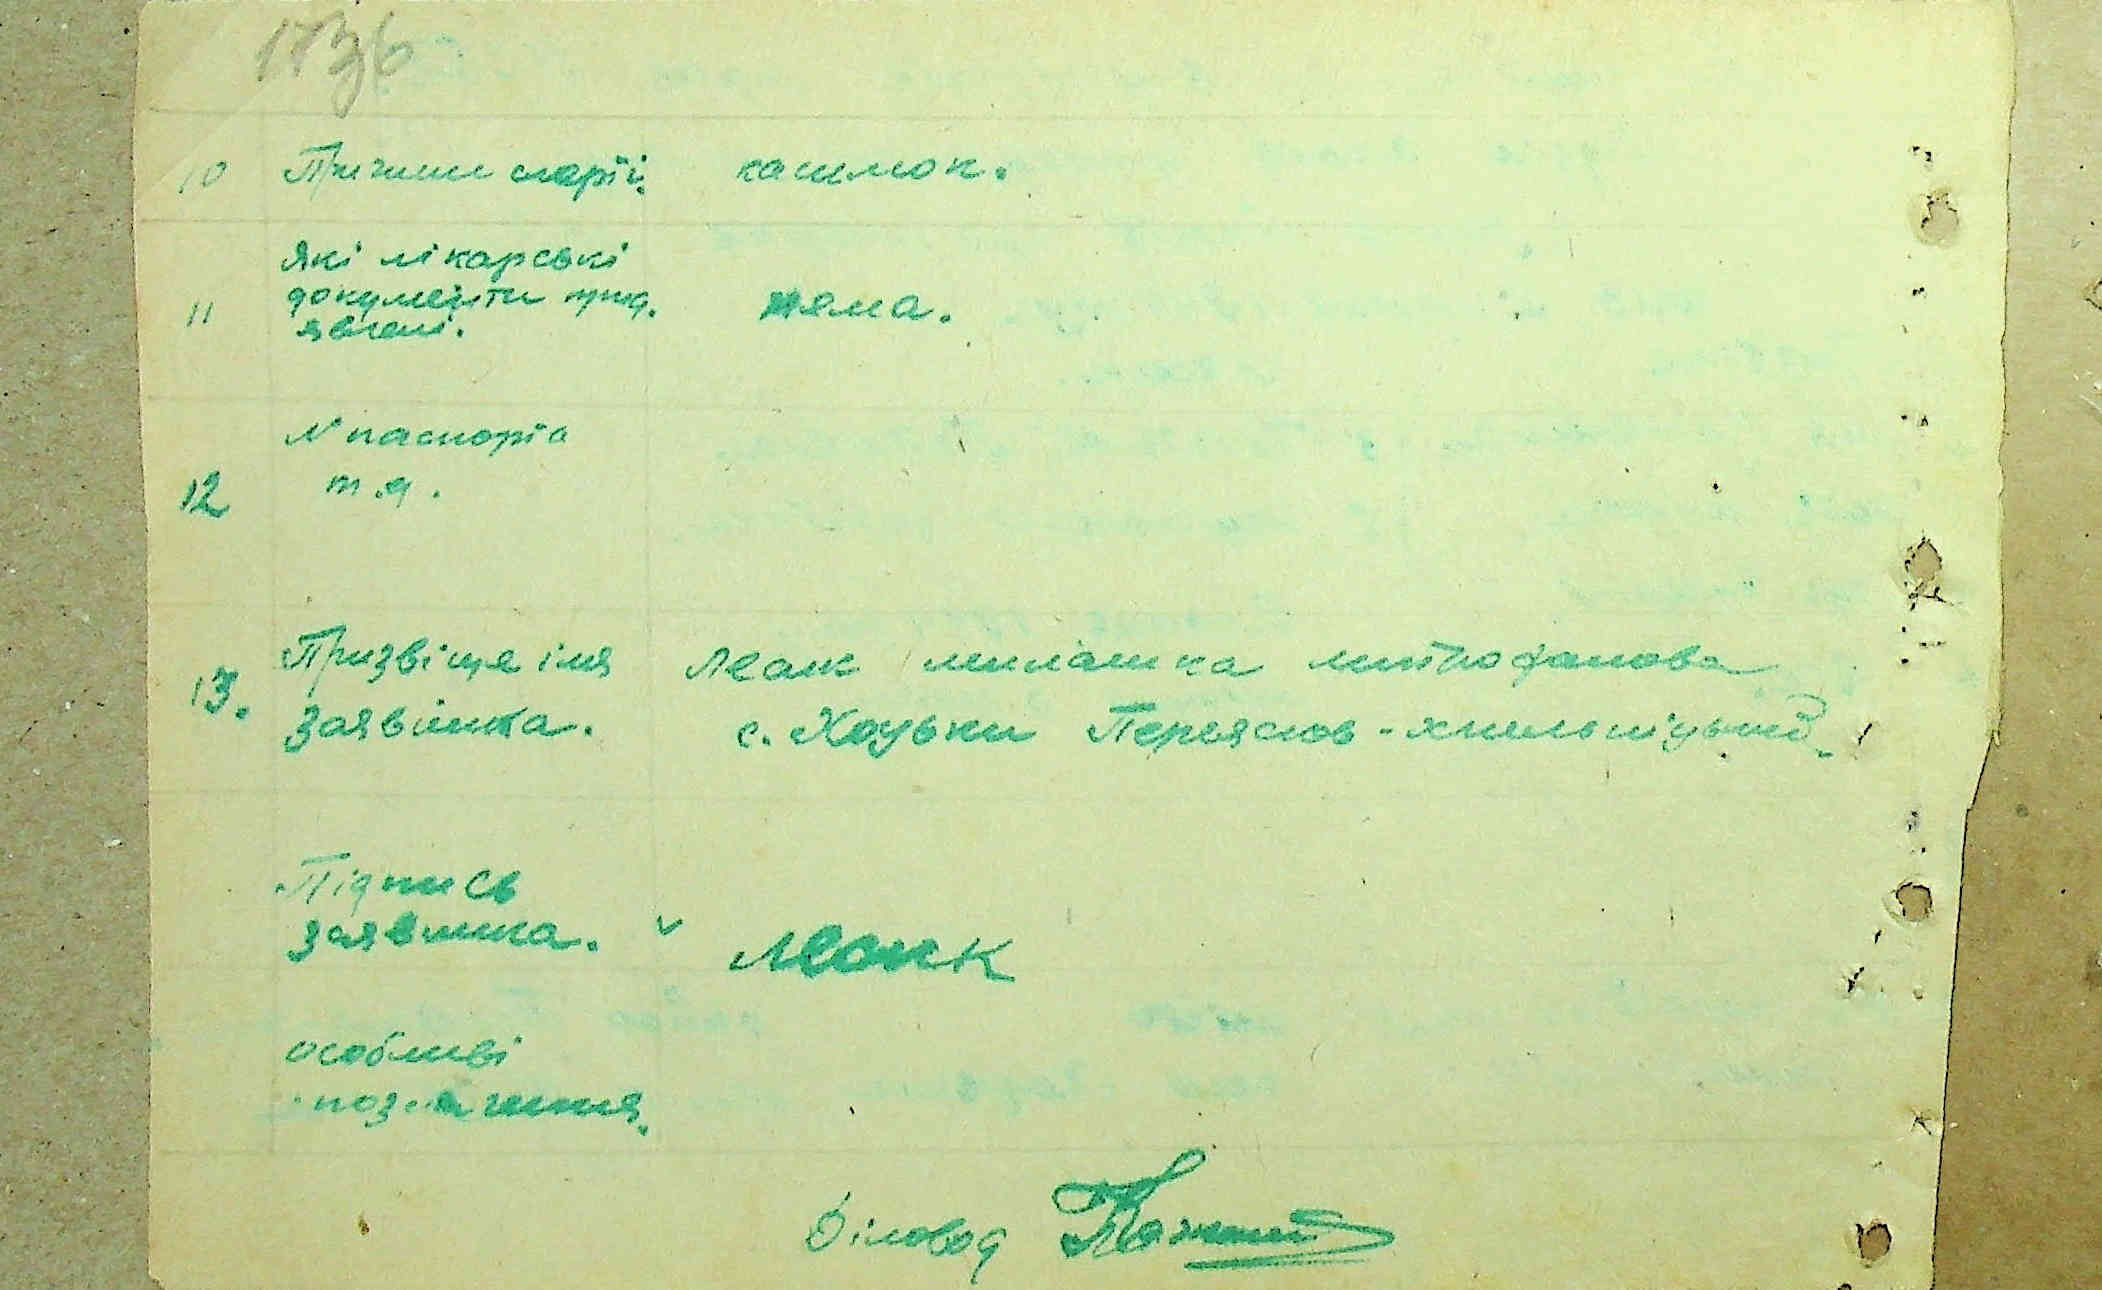 1736
10 Причини смерті. кашлюк.
11 Які лікарські документи пред. явлені. няма.
12 N паспорта т.д.
13. Призвіще імя Леанк милашка митрофанова
заявника. с. Хоцьки Переяслов-хмельніцький
Підпись
заявника. v Леанк
особливі
позначення.
Діловод